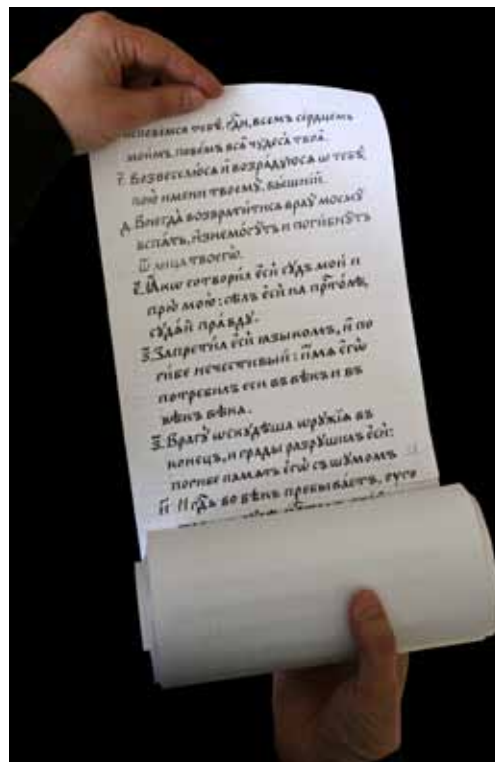 исповѣмся тебѣ, гдⷭ҇и, всемъ се́рдцемъ
мои́мъ, повѣ́мъ всѧ̑ чꙋдеса̀ твоѧ̑.
г҃. Возвеселю́сѧ и возра́дꙋюсѧ ѡ тебѣ̀,
пою̀ имени твоемꙋ̀, вы́шнїй.
д. Внегда̀ возврати́тисѧ врагꙋ̀ моемꙋ̀
вспѧ́ть, и҆знемо́гꙋтъ и поги́бнꙋтъ
ѿ лица твоегѡ̀.
є҃. Ꙗ҆́кѡ сотвори́лъ є҆сѝ сꙋ́дъ мой и
прю̀ мою̀: сѣ́лъ є҆сѝ на прⷭ҇то́лѣ,
сꙋдѧ́й пра́вдꙋ.
ѕ҃. Запрети́лъ є҆сѝ ꙗзы́комъ, и҆ по
ги́бе нечести́вый: и҆́мѧ є҆гѡ̀
потреби́лъ еси въ вѣ́къ и въ
вѣ́къ вѣ́ка.
з҃. Врагꙋ̀ ѡскꙋдѣ́ша ѡрꙋ̑жїѧ въ
коне́цъ, и гра́ды разрꙋши́лъ є҆сѝ:
поги́бе па́мѧть є҆гѡ̀ съ шꙋ́момъ
и҃ И гдⷭ҇ь во вѣ́къ пребыва́етъ, ᲂуго